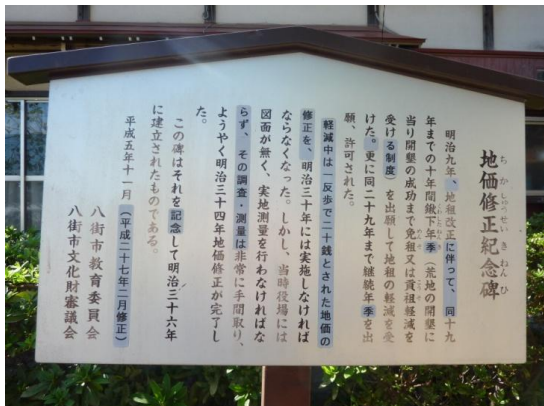 地価修正紀念碑
ちかしゅうせいきねんひ
明治九年、地租改正に伴って、同十九
年までの十年間鍬下年季（荒地の開墾に
当り開墾の成功まで免租又は貢租軽減を
受ける制度）を出願して地租の軽減を受
けた。更に同二十九年まで継続年季を出
願、許可された。
軽減中は一反歩で二十銭とされた地価の
修正を、明治三十年には実施しなければ
ならなくなった。しかし、当時役場には
図面が無く、実地測量を行わなければな
らず、その調査・測量は非常に手間取り、
ようやく明治三十四年地価修正が完了し
た。
この碑はそれを記念して明治三十六年
に建立されたものである。
平成五年十一月（平成二十七年二月修正）
八街市教育委員会
八街市文化財審議会